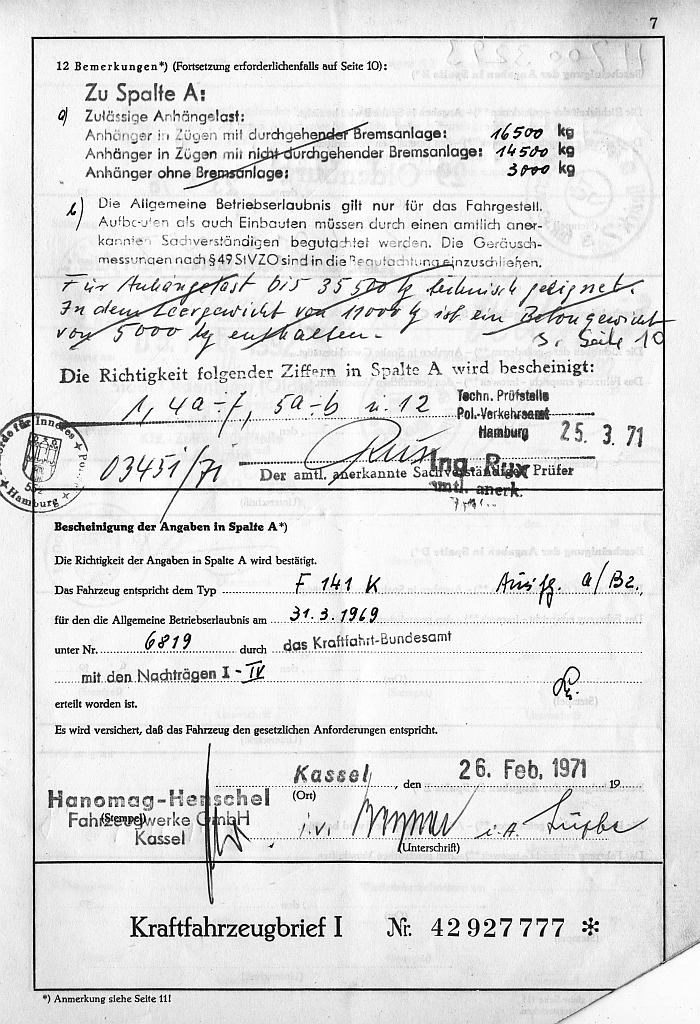 7
12 Bemerkungen*) (Fortsetzung erforderlichenfalls auf Seite 10):
Zu Spalte A:
a) Zulässige Anhängelast:
Anhänger in Zügen mit durchgehender Bremsanlage: 16500 kg
Anhänger in Zügen mit nicht durchgehender Bremsanlage: 14500 kg
Anhänger ohne Bremsanlage: 3000 kg
b) Die Allgemeine Betriebserlaubnis gilt nur für das Fahrgestell.
Aufbauten als auch Einbauten müssen durch einen amtlich aner-
kannten Sachverständigen begutachtet werden. Die Geräusch-
messungen nach § 49 StVZO sind in die Begutachtung einzuschließen.
Für Anhängelast bis 35500 kg technisch geeignet.
In dem Leergewicht von 11000 kg ist ein Betongewicht
von 5000 kg enthalten.
s. Seite 10
Die Richtigkeit folgender Ziffern in Spalte A wird bescheinigt:
1, 4a-f, 5a-b u. 12
Techn. Prüfstelle
Pol.-Verkehrsamt
Hamburg
25. 3. 71
Behörde für Inneres
Hamburg
03451/71
Ing. Rux
Der amtl. anerkannte Sachverständige Prüfer
amtl. anerk.
Bescheinigung der Angaben in Spalte A*)
Die Richtigkeit der Angaben in Spalte A wird bestätigt.
Das Fahrzeug entspricht dem Typ F 141 K Ausfg. a/Bz.,
für den die Allgemeine Betriebserlaubnis am 31.3.1969
unter Nr. 6819 durch das Kraftfahrt-Bundesamt
mit den Nachträgen I - IV
erteilt worden ist.
Es wird versichert, daß das Fahrzeug den gesetzlichen Anforderungen entspricht.
Kassel, den 26. Feb. 1971 19
(Ort)
Hanomag-Henschel
Fahrzeugwerke GmbH
Kassel
(Stempel)
i.V. i.A.
(Unterschrift)
Kraftfahrzeugbrief I Nr. 42927777 *
*) Anmerkung siehe Seite 11!